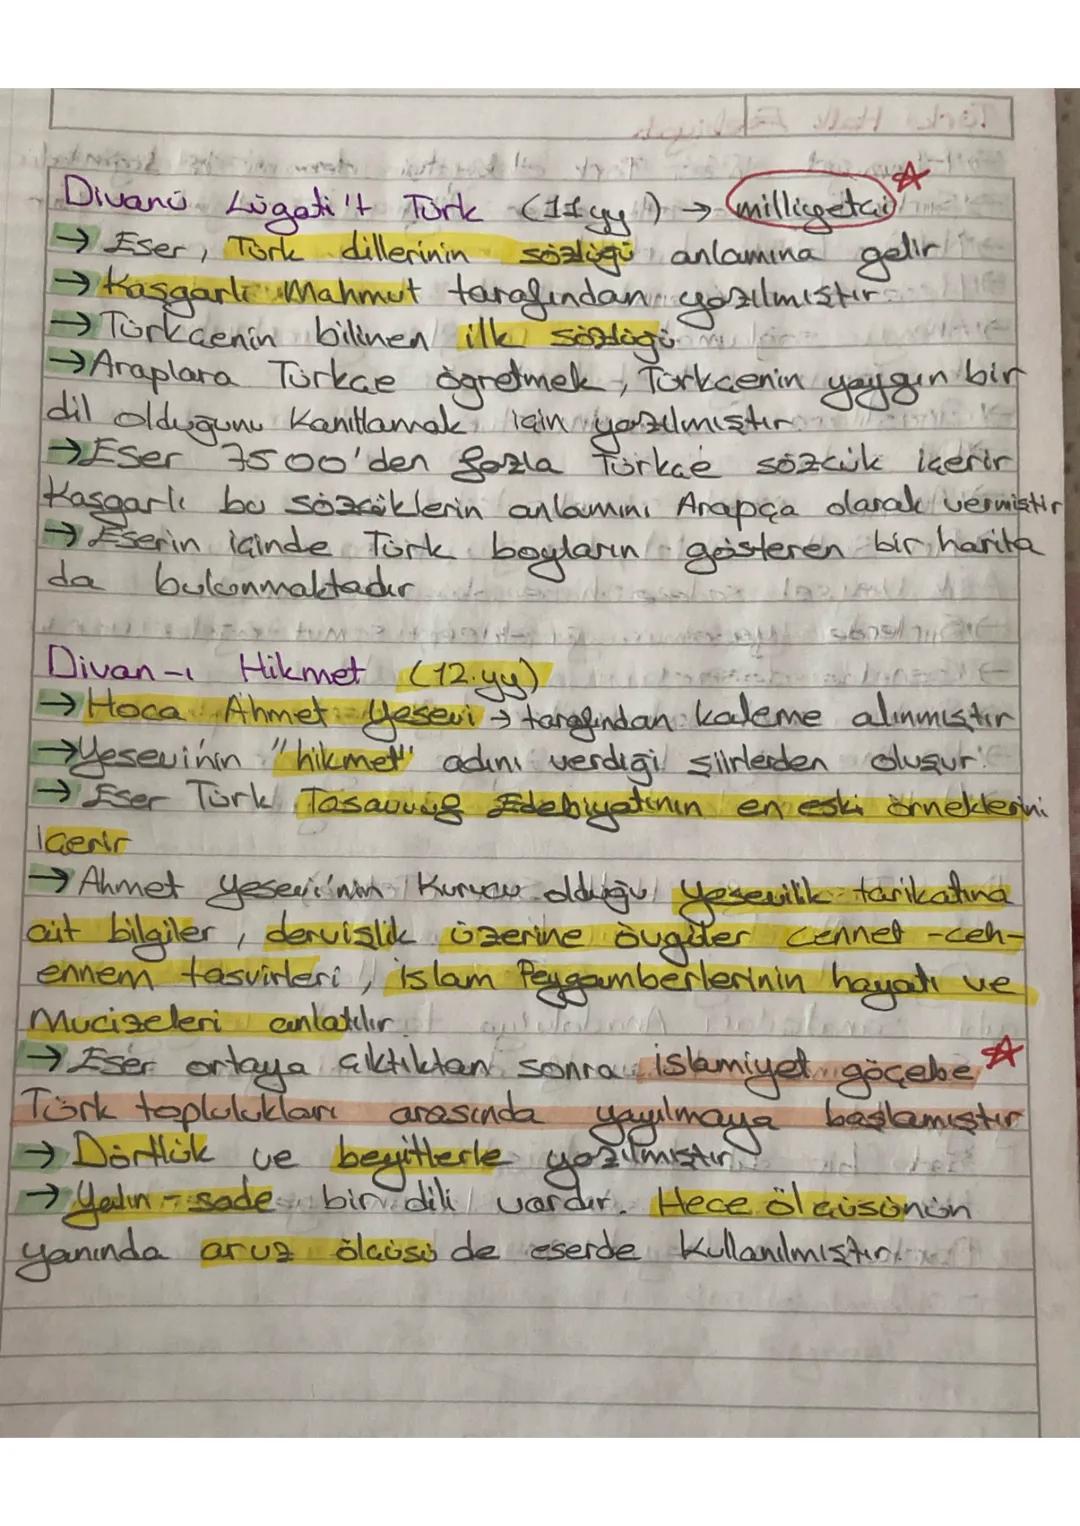 Divanü Lügati't Türk (11 yy) → milliyetçi
→ Eser, Türk dillerinin sözlüğü anlamına gelir
→ Kaşgarlı Mahmut tarafından yazılmıştır
→ Türkçenin bilinen ilk sözlüğü
→ Araplara Türkçe öğretmek, Türkçenin yaygın bir
dil olduğunu kanıtlamak için yazılmıştır
→ Eser 7500'den fazla Türkçe sözcük içerir
Kaşgarlı bu sözcüklerin anlamını Arapça olarak vermiştir
→ Eserin içinde Türk boyların gösteren bir harita
da bulunmaktadır
Divan-ı Hikmet (12.yy)
→ Hoca Ahmet Yesevi → tarafından kaleme alınmıştır
→ Yesevi'nin "hikmet" adını verdiği şiirlerden oluşur.
→ Eser Türk Tasavvuf Edebiyatının en eski örneklerini
içerir
→ Ahmet Yesevi'nin kurucu olduğu Yesevilik tarikatına
ait bilgiler, dervişlik üzerine övgüler cennet-ceh-
ennem tasvirleri, islam Peygamberlerinin hayatı ve
Mucizeleri anlatılır.
→ Eser ortaya çıktıktan sonra islamiyet göçebe
Türk toplulukları arasında yayılmaya başlamıştır
→ Dörtlük ve beyitlerle yazılmıştır
→ Yalın - sade bir dili vardır. Hece ölçüsünün
yanında aruz ölçüsü de eserde kullanılmıştır.